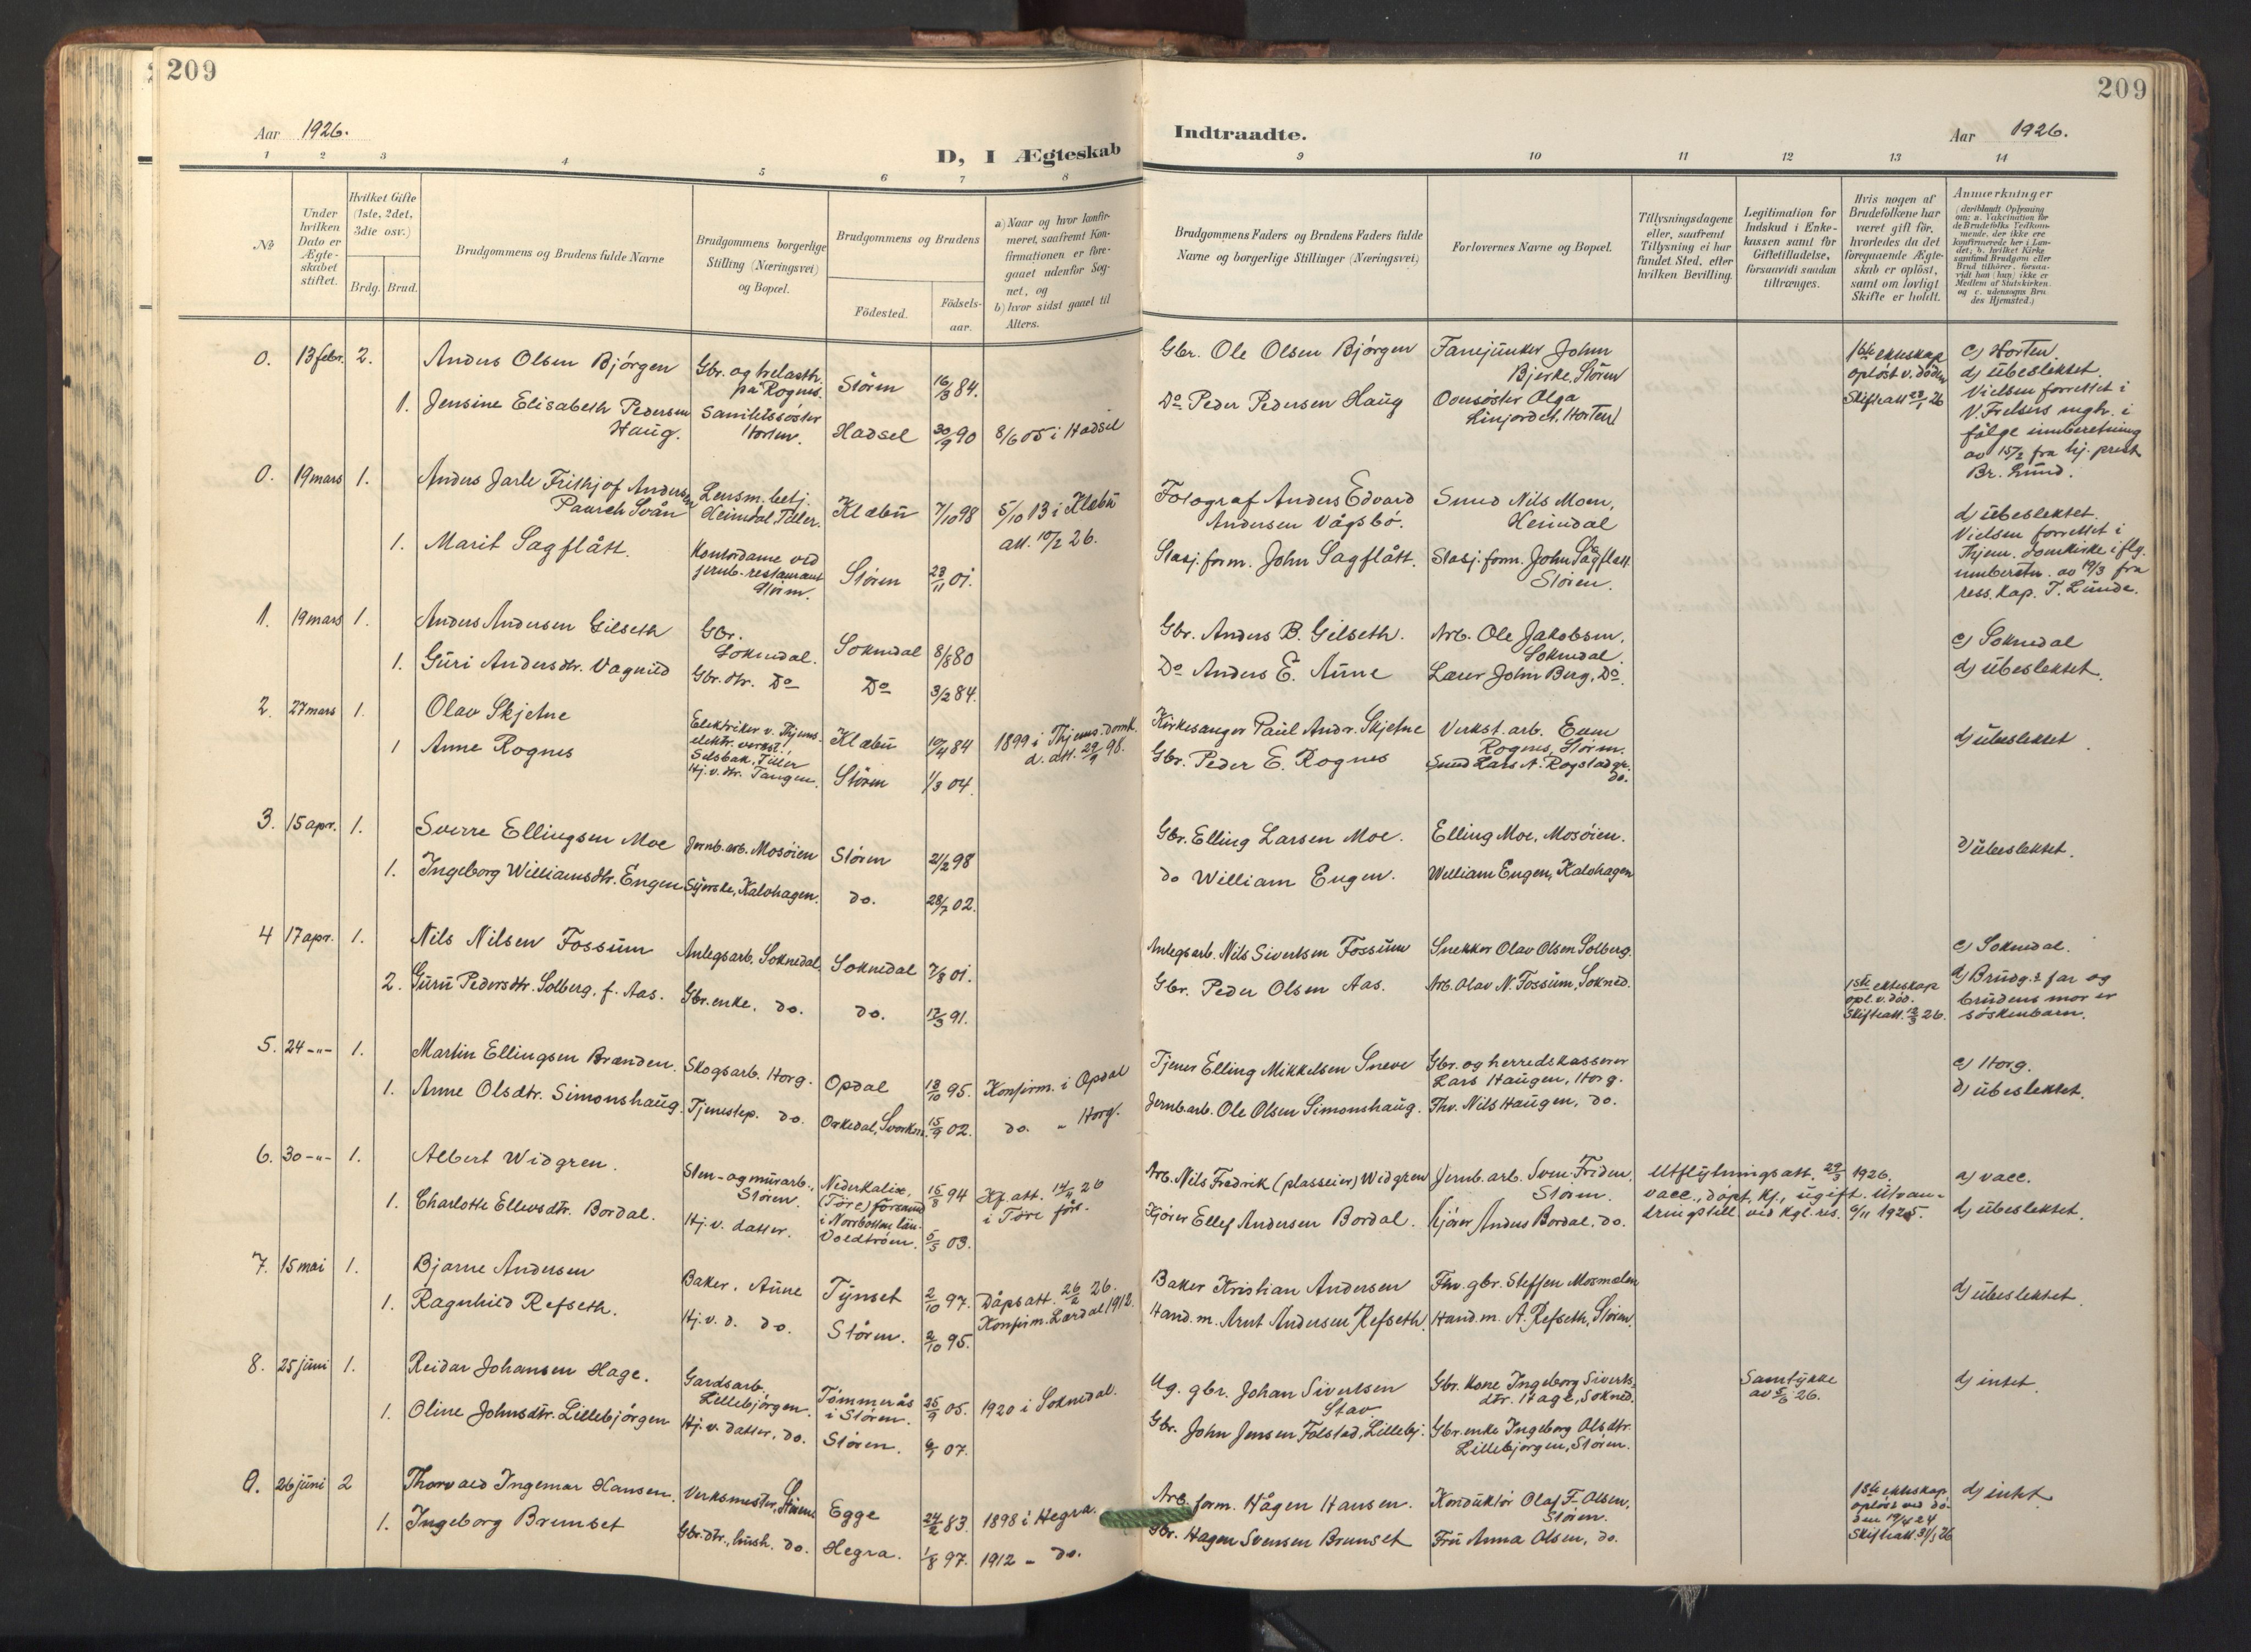 209
209
Aar 1926.
D, I Ægteskab
Indtraadte.
Aar 1926.
1 2 3 4 5 6 7 8 9 10 11 12 13 14
No
Under
hvilken
Dato er
Ægte-
skabet
stiftet.
Hvilket Gifte
(1ste, 2det,
3die osv.)
Brdg. Brud.
Brudgommens og Brudens fulde Navne
Brudgommens borgerlige
Stilling (Næringsvei)
og Bopæl.
Brudgommens og Brudens
Födested.
Födsels-
aar.
a) Naar og hvor konfir-
meret, saafremt Kon-
firmationen er fore-
gaaet udenfor Sog-
net, og
b) hvor sidst gaaet til
Alters.
Brudgommens Faders og Brudens Faders fulde
Navne og borgerlige Stillinger (Næringsvei)
Forlovernes Navne og Bopæl.
Tillysningsdagene
eller, saafremt
Tillysning ei har
fundet Sted, efter
hvilken Bevilling.
Legitimation for
Indskud i Enke-
kassen samt for
Giftetilladelse,
forsaavidt saadan
tiltrænges.
Hvis nogen af
Brudefolkene har
været gift för,
hvorledes da det
foregaaende Ægte-
skab er oplöst,
samt om lovligt
Skifte er holdt.
Anmærkninger
(deriblandt Oplysning
om: a. Vakcination for
de Brudefolks Vedkom-
mende, der ikke ere
konfirmerede her i Lan-
det; b. hvilket Kirke
samfund Brudgom eller
Brud tilhörer, forsaa-
vidt han (hun) ikke er
Medlem af Statskirken.
og c. udensogns Bru
des Hjemsted.)
0. 13 febr. 2. Anders Olsen Bjørgen
Gbr. og trelasth.
på Rognes.
Støren 16/3 84.
Gbr. Ole Olsen Bjørgen
Fanejunker John
Bjerke, Støren
1ste ekteskap
opløst v. døden
Skifteatt 23/1 26
c) Horten.
d) Ubeslektet.
Vielsen forrettet i
V. Frelsers mgh. i
følge innberetning
av 15/2 fra hj. prest
Br. Lund.
1. Jensine Elisabeth Pedersen
Haug.
Sanitetssøster
Horten.
Hadsel 30/9 90 8/6 05 i Hadsel
Do Peder Pedersen Haug
Oversøster Olga
Linjordet, Horten
0. 19 mars 1. Anders Jarle Frithjof Andersen
Paasch Svån
Lensm. betj.
Heimdal, Tiller.
Klæbu 7/10 98 5/10 13 i Klæbu
att. 10/2 26.
Fotograf Anders Edvard
Andersen Vågsbø.
Smed Nils Moen,
Heimdal
d) Ubeslektet.
Vielsen forrettet i
Thjem. domkirke iflg.
innberetn. av 19/3 fra
ress. kap. T. Lunde.
1. Marit Sagflått.
Kontordame ved
jernb.-restaurant
Støren.
Støren 23/11 01.
Stasj. form. John Sagflått.
Stasj. form. John Sagflått
Støren.
1. 19 mars 1. Anders Andersen Gilseth
Gbr.
Soknedal.
Soknedal 8/8 80
Gbr. Anders B. Gilseth.
Arb. Ole Jakobsen,
Soknedal.
c) Soknedal
d) Ubeslektet.
1. Guri Andersdtr. Vagnild
Gbr. dtr. Do
Do 3/2 84.
Do Anders E. Aune
Lærer John Berg, Do.
2. 27 mars 1. Olav Skjetne
Elektriker v. Thjems.
elektr. verkst.
Selsbak, Tiller
Klæbu 10/4 84
1899 i Thjems. domk.
d. att. 29/9 98.
Kirkesanger Paul Andr. Skjetne
Verkst. arb. Even
Rognes, Støren.
d) Ubeslektet.
1 Anne Rognes
Hj. v. dtr. Tangen.
Støren 1/3 04.
Gbr. Peder E. Rognes
Smed Lars A. Rogstadgr.
do.
3. 15 apr. 1. Sverre Ellingsen Moe
Jernb. arb. Mosøien
Støren 21/2 98
Gbr. Elling Larsen Moe.
Elling Moe, Mosøien.
d) ubeslektet.
1. Ingeborg Williamsdtr. Engen
Syerske, Kalvhagen.
do. 28/7 02.
do William Engen.
William Engen, Kalvhagen
4 17 apr. 1. Nils Nilsen Fossum
Anlegsarb. Soknedal.
Soknedal 7/8 01.
Anlegsarb. Nils Sivertsen Fossum
Snekker Olav Olsen Solberg.
c) Soknedal.
2. Guru Pedersdtr. Solberg. f. Aas.
Gbr. enke, do.
do. 17/3 91.
Gbr. Peder Olsen Aas.
Arb. Olav N. Fossum, Sokned.
1ste ekteskap
opl. v. død.
Skifteatt. 13/3 26.
d) Brudg.s far og
brudens mor er
søskenbarn.
5. 24 -"- 1. Martin Ellingsen Brænden.
Skogsarb. Horg.
Opdal 18/10 95. Konfirm. i Opdal
Tjener Elling Mikkelsen Sneve
Gbr. og herredskasserer
Lars Haugen, Horg.
c) Horg.
d) ubeslektet.
1. Anne Olsdtr. Simonshaug.
Tjenestep. do.
Orkedal, Svorkm. 15/9 02. do. " Horg.
Jernb. arb. Ole Olsen Simonshaug.
Fhv. Nils Haugen, do.
6. 30 -"- 1. Albert Widgren.
Sten- og murarb.,
Støren.
Nederkalix,
(Töre) församl.
i Norrbotten län
15/8 94
Kf. att. 14/4 26
i Töre förs.
Arb. Nils Fredrik (plasseier) Widgren
Jernb. arb. Sven Friden,
Støren.
Utflytningsatt. 29/3 1926,
vacc., døpt, kf., ugift. Utvan-
dringstill. ved kgl. res. 6/11 1925.
a) vacc.
d) ubeslektet.
1. Charlotte Ellevsdtr. Bordal.
Hj. v. datter.
Voldtrøen. 5/5 03.
Kjører Ellef Andersen Bordal.
Kjører Anders Bordal, do.
7. 15 mai 1. Bjarne Andersen
Baker, Aune
Tynset 2/10 97.
Dåpsatt. 26/2 26.
Konfirm. Lærdal 1912.
Baker Kristian Andersen
Fhv. gbr. Steffen Mosmelen
d) ubeslektet.
1. Ragnhild Refseth.
Hj. v. d. do.
Støren. 2/10 95.
Hand. m. Arnt Andersen Refseth.
Hand. m. A. Refseth, Støren.
8. 25 juni 1. Reidar Johansen Hage.
Gardsarb.
Lillebjørgen.
Tømmerås
i Støren.
25/9 05. 1920 i Soknedal.
Ug. gbr. Johan Sivertsen
Stav
Gbr. kone Ingeborg Siverts-
dtr. Hage, Sokned.
Samtykke
av 5/6 26.
d) intet
1. Oline Johnsdtr. Lillebjørgen
Hj. v. datter, do.
Støren. 6/7 07.
Gbr. John Jensen Folstad, Lillebj.
Gbr. enke Ingeborg Olsdtr.
Lillebjørgen, Støren.
9. 26 juni 2 Thorvald Ingemar Hansen.
Verksmester, Støren
Egge 24/2 83. 1898 i Hegra.
Arb. form. Hågen Hansen.
Konduktør Olaf F. Olsen,
Støren.
1ste ekteskap
opløst ved dø-
den 19/4 24
Skifteatt. 31/5 26
d) intet
1. Ingeborg Bremset
Gbr. dtr., hush. do.
Hegra. 1/8 97. 1912 - do.
Gbr. Hagen Svensen Bremset
Fru Anna Olsen, do.